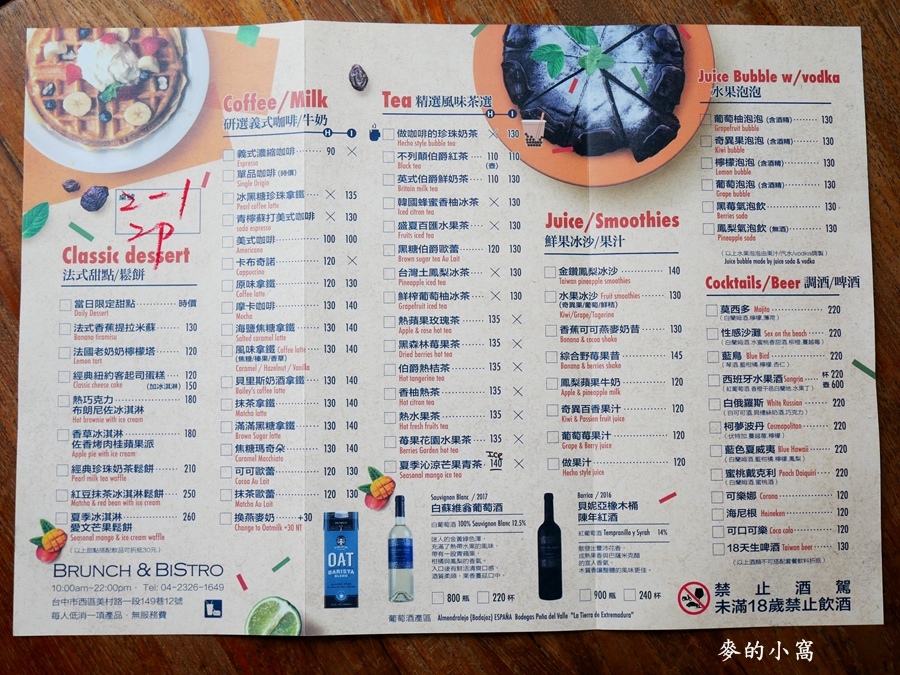 2-1
2P
Classic dessert
法式甜點/鬆餅
當日限定甜點 時價
Daily Dessert
法式香蕉提拉米蘇 130
Banana tiramisu
法國老奶奶檸檬塔 120
Lemon tart
經典紐約客起司蛋糕 120
Classic cheese cake (加冰淇淋) 150
熱巧克力 180
布朗尼佐冰淇淋
Hot brownie with ice cream
香草冰淇淋 180
佐香烤肉桂蘋果派
Apple pie with ice cream
經典珍珠奶茶鬆餅 210
Pearl milk tea waffle
紅豆抹茶冰淇淋鬆餅 250
Matcha & red bean with ice cream
夏季冰淇淋 260
愛文芒果鬆餅
Seasonal mango & ice cream waffle
(以上甜點搭配飲品可折抵30元)
BRUNCH & BISTRO
10:00am~22:00pm · Tel: 04-2326-1649
台中市西區美村路一段149巷12號
每人低消一項產品,無服務費
Coffee/Milk
研選義式咖啡/牛奶
H I
義式濃縮咖啡 90 ×
Espresso
單品咖啡 (時價)
Single Origin
冰黑糖珍珠拿鐵 × 135
Pearl coffee latte
青檸蘇打美式咖啡 × 130
soda espresso
美式咖啡 100 100
Americano
卡布奇諾 120 ×
Cappuccino
原味拿鐵 120 130
Coffee latte
摩卡咖啡 130 140
Mocha
海鹽焦糖拿鐵 130 140
Salted caramel latte
風味拿鐵 Coffee latte 130 140
(焦糖/榛果/香草)
Caramel / Hazelnut / Vanilla
貝里斯奶酒拿鐵 130 140
Bailey's coffee latte
抹茶拿鐵 130 140
Matcha latte
滿滿黑糖拿鐵 130 140
Brown Sugar latte
焦糖瑪奇朵 130 140
Caramel Macchiato
可可歐蕾 120 130
Cocoa Au Lait
抹茶歐蕾 120 130
Matcha Au Lait
換燕麥奶 +30
Change to Oatmilk +30 NT
Tea 精選風味茶選
H I
做咖啡的珍珠奶茶 × 130
Hecho style bubble tea
不列顛伯爵紅茶 110 110
Black tea (壺)
英式伯爵鮮奶茶 110 130
Britain milk tea
韓國蜂蜜香柚冰茶 × 130
Iced citron tea
盛夏百匯水果茶 × 130
Fruits iced tea
黑糖伯爵歐蕾 120 130
Brown sugar tea Au Lait
台灣土鳳梨冰茶 × 130
Pineapple iced tea
鮮榨葡萄柚冰茶 × 130
Grapefruit iced tea
熱蘋果玫瑰茶 135 ×
Apple & rose hot tea
黑森林莓果茶 135 ×
Dried berries hot tea
伯爵熱桔茶 135 ×
Hot tangerine tea
香柚熱茶 135 ×
Hot citron tea
熱水果茶 135 ×
Hot fresh fruits tea
莓果花園水果茶 135 ×
Berries Garden hot tea
ICE
夏季沁涼芒果青茶 140 ×
Seasonal mango ice tea
OAT
BARISTA
BLEND
Sauvignon Blanc / 2017
白蘇維翁葡萄酒
白葡萄酒 100% Sauvignon Blanc 12.5%
迷人的金黃綠色澤,
充滿了熱帶水果的風味,
帶有一股青蘋果、
柑橘與鳳梨的香氣,
入口後有鮮活清爽口感,
酒質柔順,果香蔓延口中。
800 瓶 220 杯
Juice/Smoothies
鮮果冰沙/果汁
金鑽鳳梨冰沙 140
Taiwan pineapple smoothies
水果冰沙 Fruit smoothies 130
(奇異果/葡萄/鮮桔)
Kiwi/Grape/Tagerine
香蕉可可燕麥奶昔 130
Banana & cacoa shake
綜合野莓果昔 145
Banana & berries shake
鳳梨蘋果牛奶 120
Apple & pineapple milk
奇異百香果汁 120
Kiwi & Passion fruit juice
葡萄莓果汁 120
Grape & Berry juice
做果汁 120
Hecho style juice
Barica / 2016
貝妮亞橡木桶
陳年紅酒
紅葡萄酒 Tempranillo y Syrah 14%
散發出雪沛花香、
成熟果香與巴薩米克醋
的宜人香氣,
木質香讓整體的風味更佳。
900 瓶 240 杯
葡萄酒產區 Almendralejo (Badajoz) ESPAÑA Bodegas Peña del Valle "La Tierra de Extremadura"
Juice Bubble w/vodka
水果泡泡
葡萄柚泡泡 (含酒精) 130
Grapefruit bubble
奇異果泡泡 (含酒精) 130
Kiwi bubble
檸檬泡泡 (含酒精) 130
Lemon bubble
葡萄泡泡 (含酒精) 130
Grape bubble
黑莓氣泡飲 (無酒) 130
Berries soda
鳳梨氣泡飲 (無酒) 130
Pineapple soda
(以上水果泡泡由果汁/汽水/vodka調製)
Juice bubble made by juice soda & vodka
Cocktails/Beer 調酒/啤酒
莫西多 Mojito 220
(白蘭姆酒,檸檬,薄荷)
性感沙灘 Sex on the beach 220
藍鳥 Blue Bird 220
(琴酒,藍柑橘,檸檬,杏仁)
西班牙水果酒 Sangria 杯 220
壺 600
白俄羅斯 White Russian 220
柯夢波丹 Cosmopolitan 220
(伏特加,蔓越莓,檸檬)
藍色夏威夷 Blue Hawaii 220
蜜桃戴克利 Peach Daiquiri 220
可樂娜 Corona 120
海尼根 Heineken 120
可口可樂 Coca cola 120
18天生啤酒 Taiwan beer 130
(以上酒精不可搭配套餐飲料折抵)
禁止酒駕
未滿18歲禁止飲酒
麥的小窩